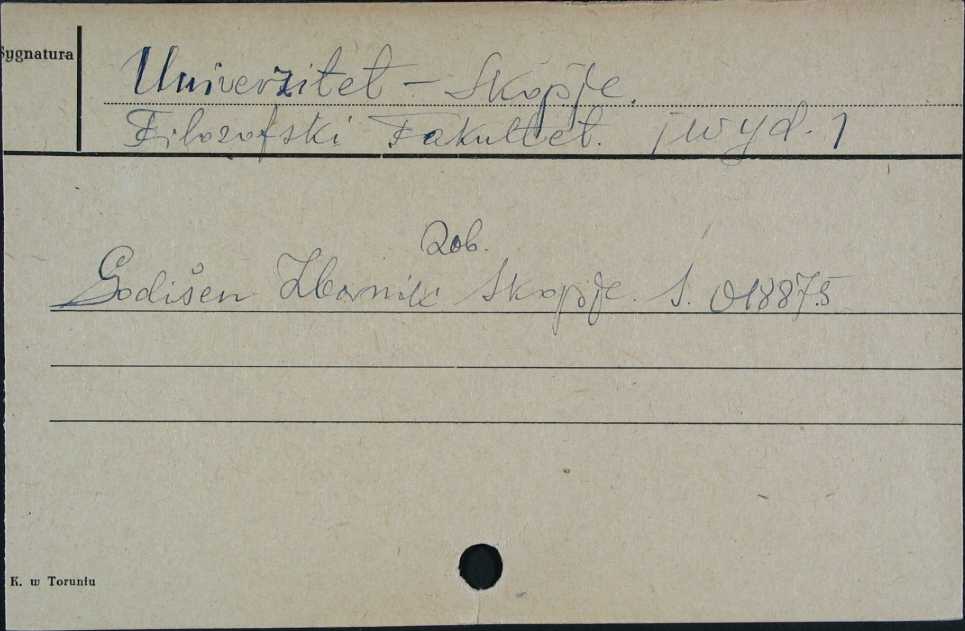 Sygnatura
Univerzitet - Skopje.
Filozofski Fakultet. [wyd.]
Zob.
Godišen Zbornik Skopje. S. 018875
K. w Toruniu